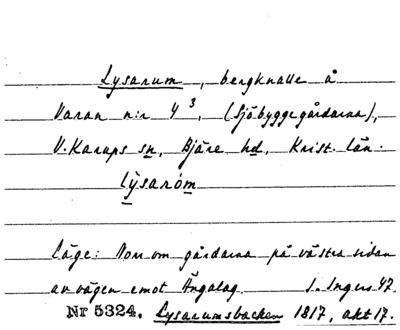 Lysarum, bergknalle å
Varan n:r 4³, (Sjöbyggegårdarna),
V. Karups sn, Bjäre hd, Krist. län.
lỳsaróm
Läge: Norr om gårdarna på västra sidan
av vägen emot Ängalag. S. Ingers 47.
Nr 5324, Lysarumsbacken 1817, akt 17.